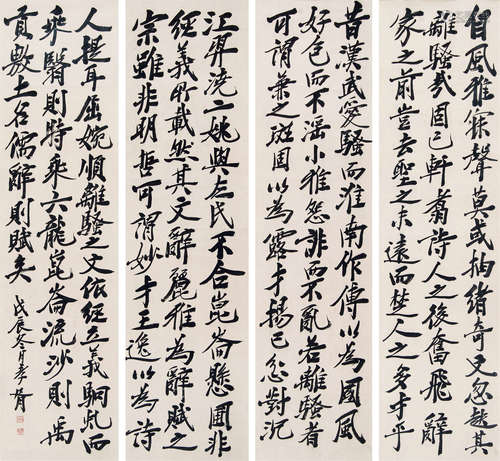 自風雅寐聲莫或抽緒奇文忽起其
離騷哉固已軒翥詩人之後奮飛辭
家之前豈去聖之未遠而楚人之多才乎
昔漢武愛騷而淮南作傳以為國風
好色而不淫小雅怨誹而不亂若離騷者
可謂兼之班固以為露才揚己忿對沉
江羿澆二姚與左氏不合崑崙懸圃非
經義所載然其文辭麗雅為辭賦之
宗雖非明哲可謂妙才王逸以為詩
人提耳屈婉順離騷之文依經立義駟虬而
乘醫則時乘六龍崑崙流沙則禹
貢敷土名儒辭則賦矣
戊辰冬月孝胥